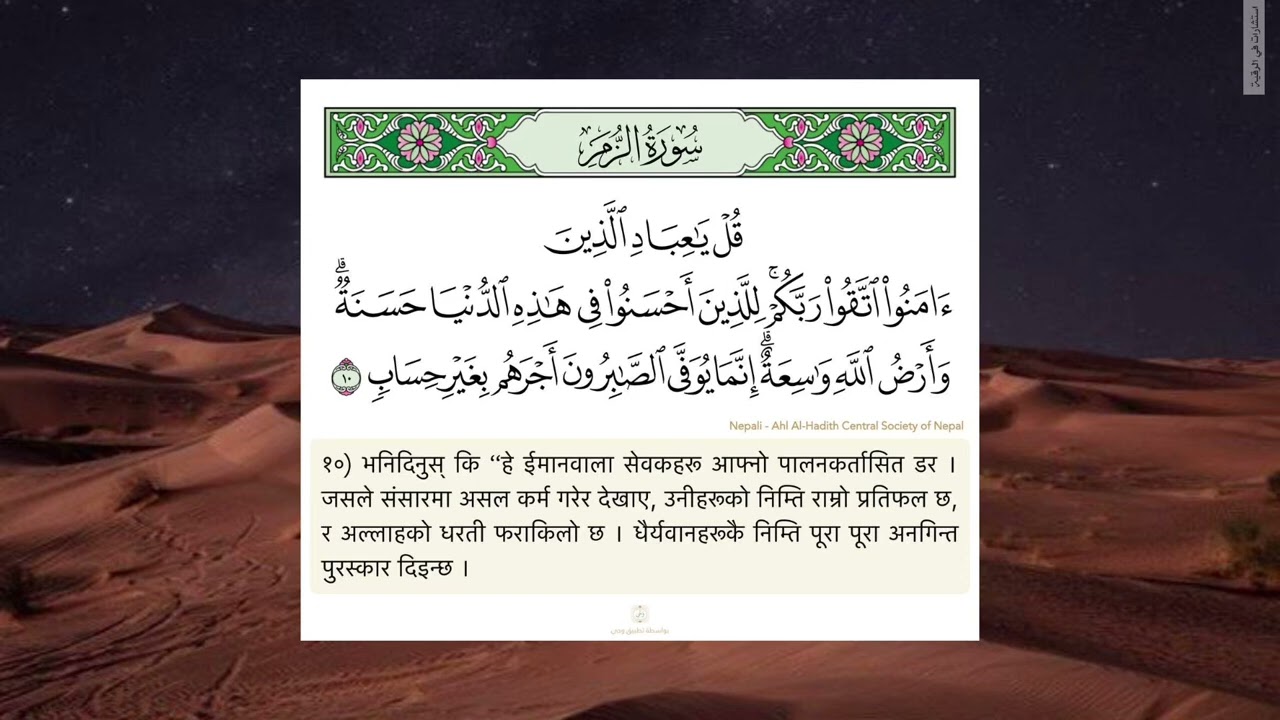 استشارات في الرقية
سُورَةُ الزُّمَرِ
قُلْ يَٰعِبَادِ ٱلَّذِينَ
ءَامَنُوا۟ ٱتَّقُوا۟ رَبَّكُمْ ۚ لِلَّذِينَ أَحْسَنُوا۟ فِى هَٰذِهِ ٱلدُّنْيَا حَسَنَةٌ ۗ
وَأَرْضُ ٱللَّهِ وَٰسِعَةٌ ۗ إِنَّمَا يُوَفَّى ٱلصَّٰبِرُونَ أَجْرَهُم بِغَيْرِ حِسَابٍ ١٠
Nepali - Ahl Al-Hadith Central Society of Nepal
१०) भनिदिनुस् कि “हे ईमानवाला सेवकहरू आफ्नो पालनकर्तासित डर ।
जसले संसारमा असल कर्म गरेर देखाए, उनीहरूको निम्ति राम्रो प्रतिफल छ,
र अल्लाहको धरती फराकिलो छ । धैर्यवानहरूकै निम्ति पूरा पूरा अनगिन्त
पुरस्कार दिइन्छ ।
بواسطة تطبيق وحي